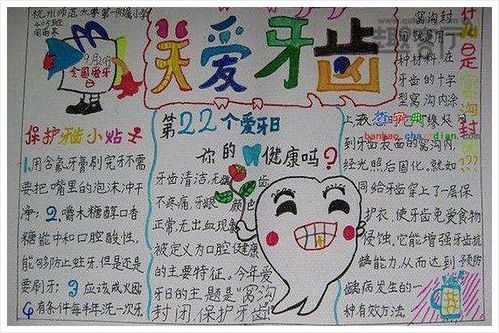 杭州师范大学第一附属小学
405班
9月20日
全国爱牙日
关爱牙齿
保护牙齿小贴士
1.用含氟牙膏刷完牙不需
要把嘴里的泡沫冲干
净;2.嚼木糖醇口香
糖能中和口腔酸性,
能够防止蛀牙,但是还是
要刷牙;3.应该成人四
有条件每半年洗一次牙
第22个爱牙日
你的 健康吗?
牙齿清洁,无龋
不疼痛,牙龈
正常,无出血现象
被定义为口腔健康
的主要特征。今年爱
牙日的主题是“窝沟
封闭,保护牙齿
什么是窝沟封
窝沟封
种材料
在牙齿的十字
型窝沟内涂
上
到牙齿表面的窝沟内,
经光照后固化。就如
同给牙齿穿上了一层保
护衣,使牙齿免受食物
侵蚀,它能增强牙齿抗
龋能力,从而达到预防
龋病发生的一
种有效方法。
banbao.cha.dian.